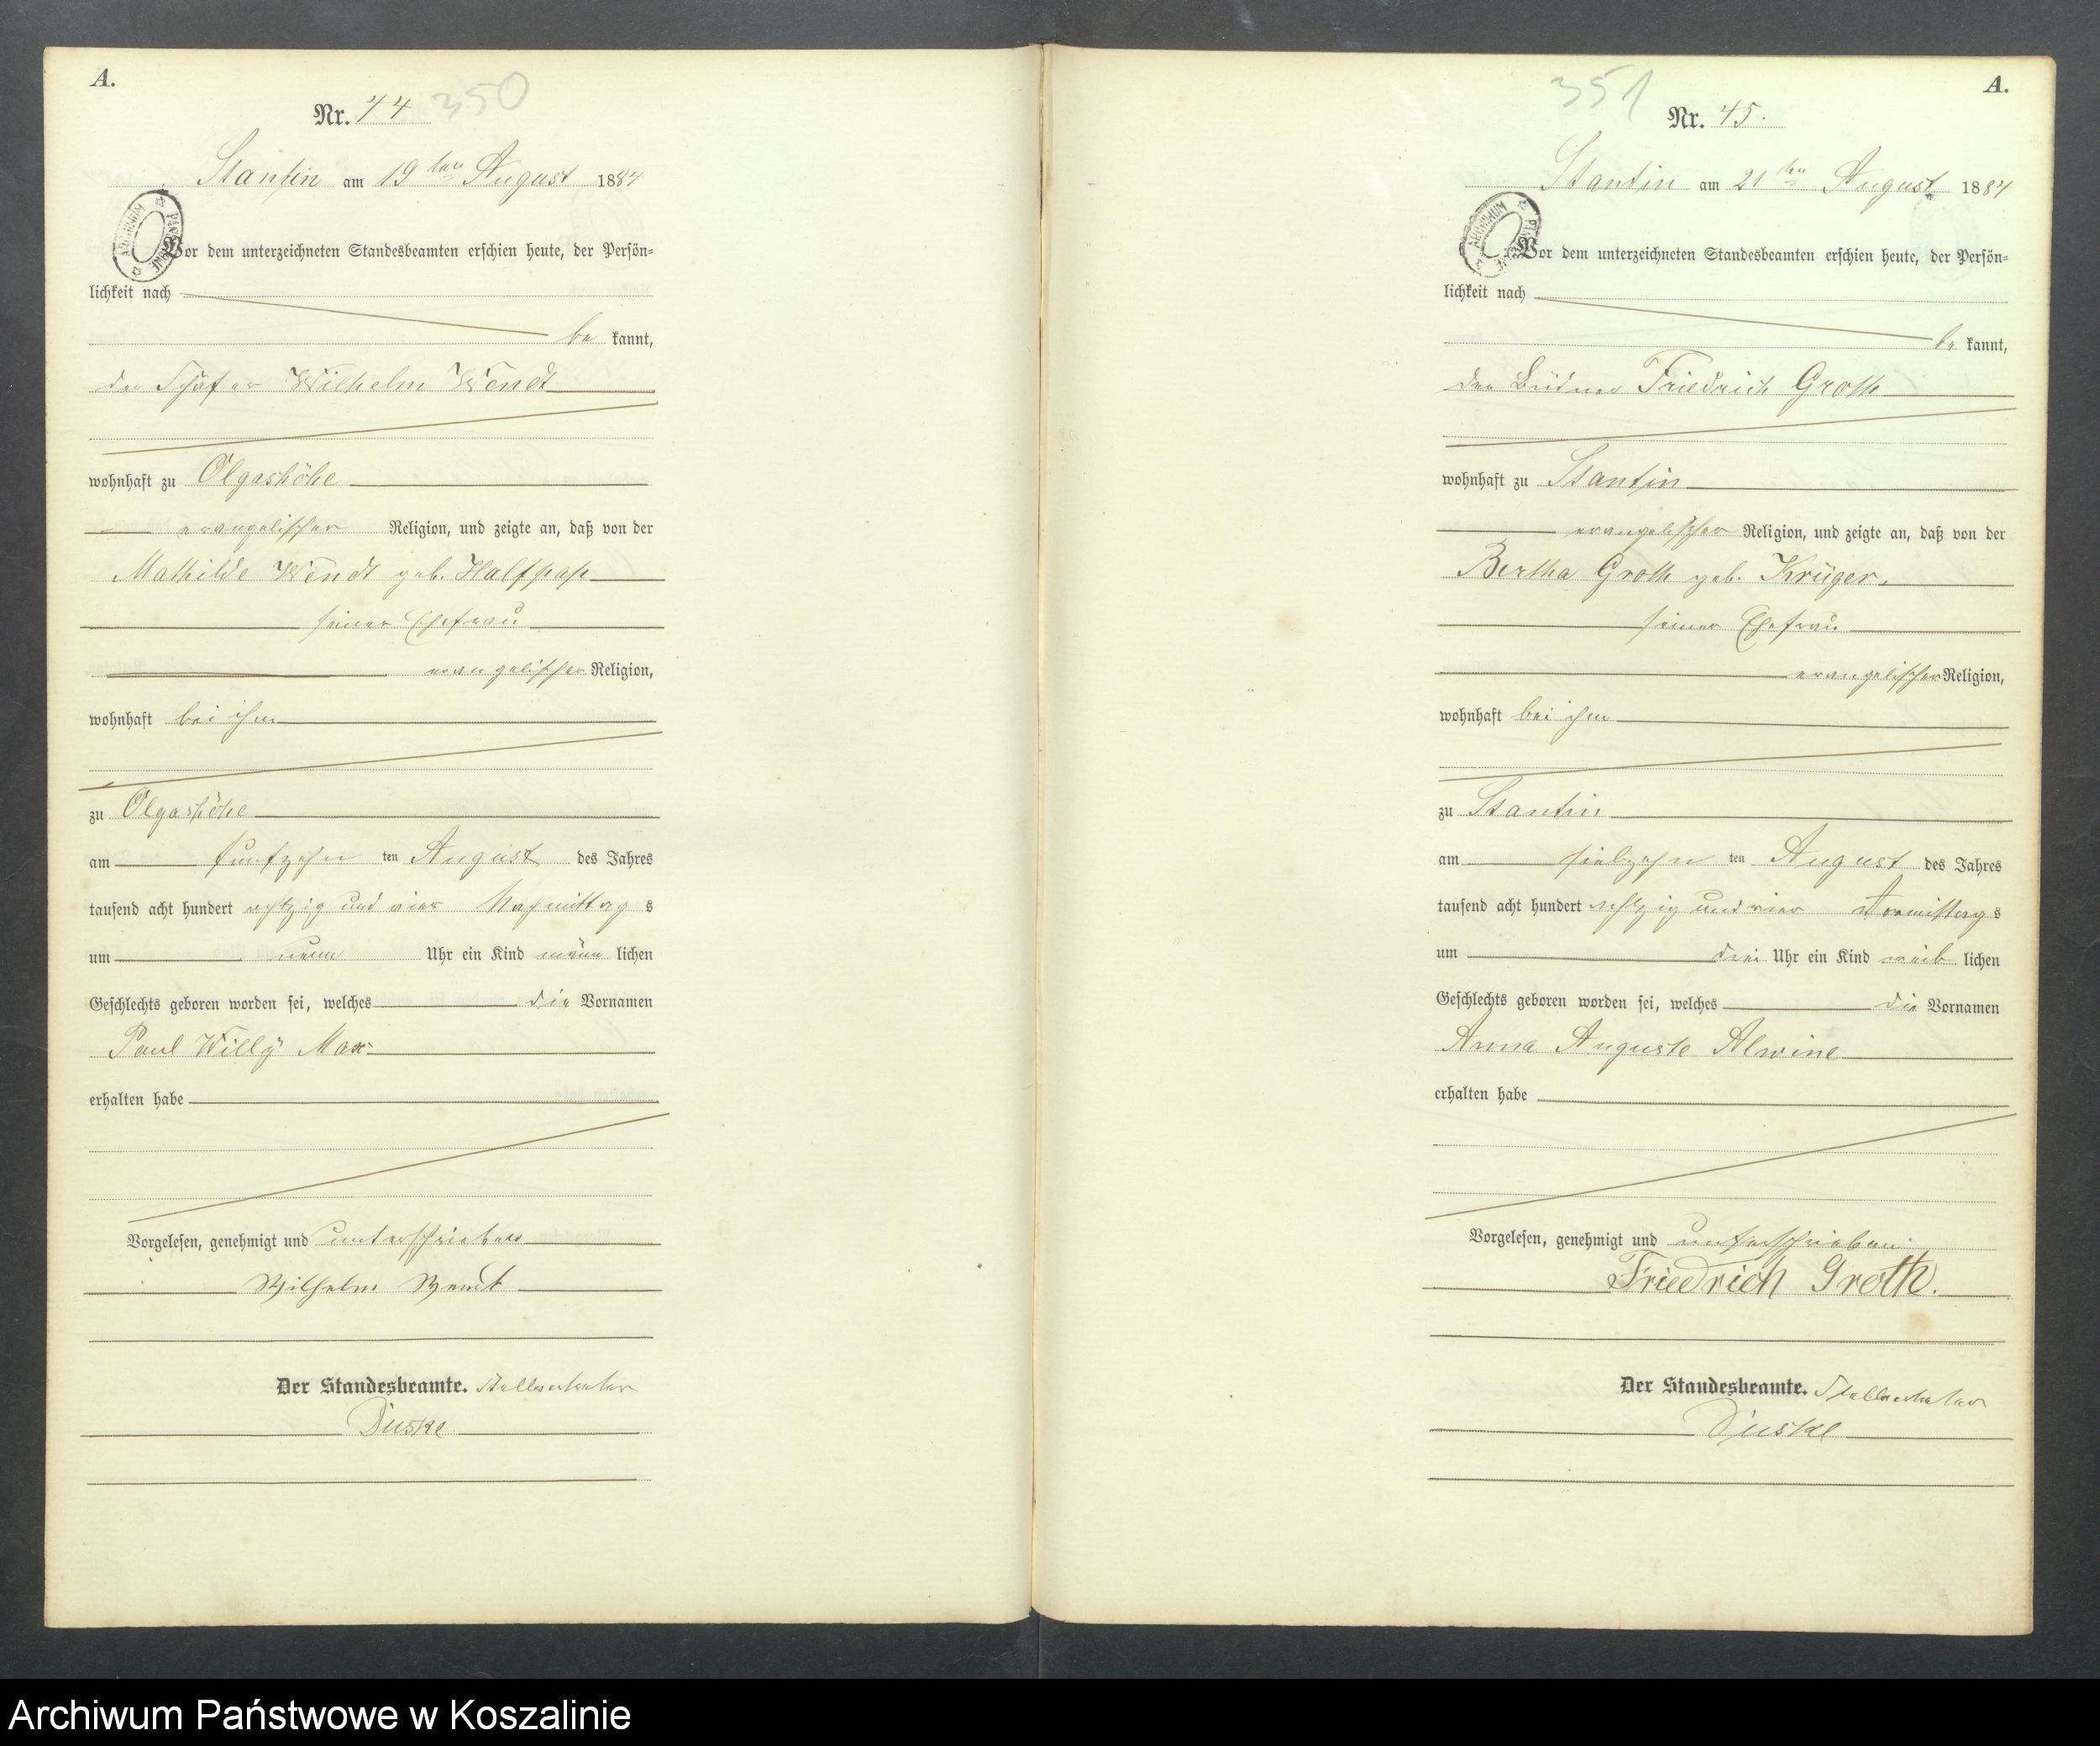 A.
Nr. 44 350
Stantin am 19ten August 1884
Vor dem unterzeichneten Standesbeamten erschien heute, der Persön-
lichkeit nach
be kannt,
der Schäfer Wilhelm Wendt
wohnhaft zu Olgashöhe
evangelischer Religion, und zeigte an, daß von der
Mathilde Wendt geb. Halfpap
seiner Ehefrau
evangelischer Religion,
wohnhaft bei ihm
zu Olgashöhe
am funfzehn ten August des Jahres
tausend acht hundert achtzig und vier Nachmittag s
um neun Uhr ein Kind männ lichen
Geschlechts geboren worden sei, welches die Vornamen
Paul Willy Max
erhalten habe
Vorgelesen, genehmigt und unterschrieben
Wilhelm Wendt
Der Standesbeamte. Stellvertreter
Duske
A.
351
Nr. 45.
Stantin am 21ten August 1884
Vor dem unterzeichneten Standesbeamten erschien heute, der Persön-
lichkeit nach
be kannt,
der Büdner Friedrich Groth
wohnhaft zu Stantin
evangelischer Religion, und zeigte an, daß von der
Bertha Groth geb. Krüger,
seiner Ehefrau
evangelischer Religion,
wohnhaft bei ihm
zu Stantin
am siebzehn ten August des Jahres
tausend acht hundert achtzig und vier Vormittag s
um drei Uhr ein Kind weib lichen
Geschlechts geboren worden sei, welches die Vornamen
Anna Auguste Alwine
erhalten habe
Vorgelesen, genehmigt und unterschrieben
Friedrich Groth.
Der Standesbeamte. Stellvertreter
Duske
Archiwum Państwowe w Koszalinie